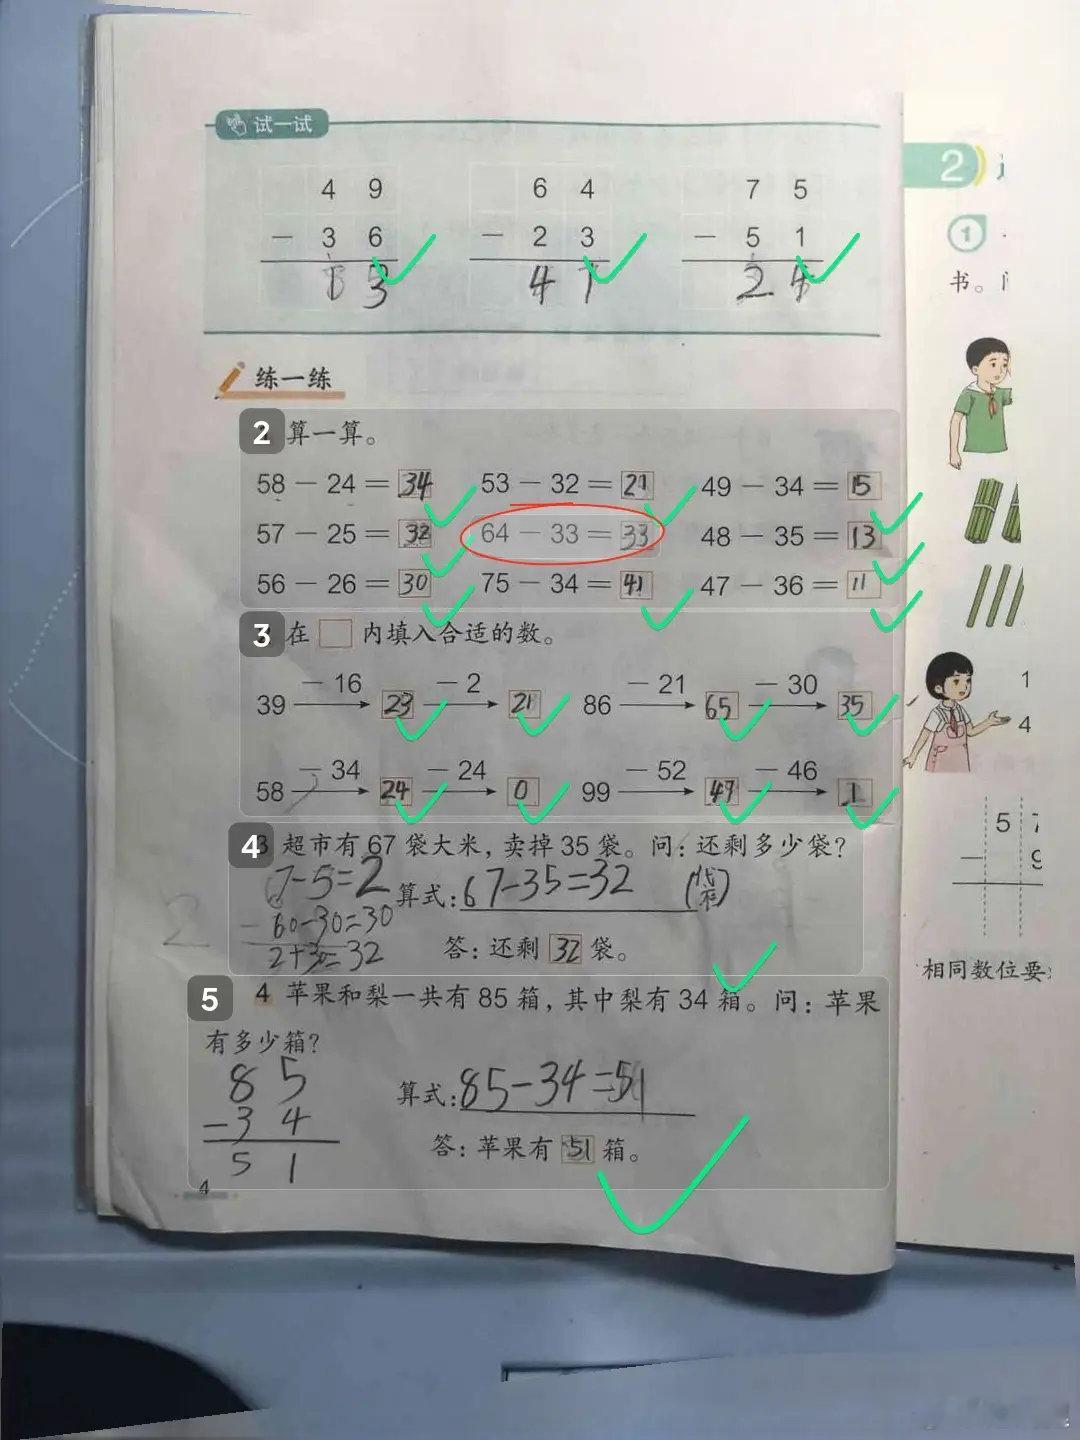 试一试
4 9 6 4 7 5
- 3 6 - 2 3 - 5 1
1 3 4 1 2 4
练一练
2 算一算。
58 - 24 = 34 53 - 32 = 21 49 - 34 = 15
57 - 25 = 32 64 - 33 = 33 48 - 35 = 13
56 - 26 = 30 75 - 34 = 41 47 - 36 = 11
3 在 □ 内填入合适的数。
- 16 - 2 - 21 - 30
39 → 23 → 21 86 → 65 → 35
- 34 - 24 - 52 - 46
58 → 24 → 0 99 → 47 → 1
4 3 超市有 67 袋大米，卖掉 35 袋。问：还剩多少袋？
7-5=2
算式：67-35=32 (袋)
60-30=30
2+30=32
答：还剩 32 袋。
5 4 苹果和梨一共有 85 箱，其中梨有 34 箱。问：苹果
有多少箱？
8 5
- 3 4
5 1
算式：85-34=51
答：苹果有 51 箱。
4
2
1
书。
1
4
5
-
9
相同数位要